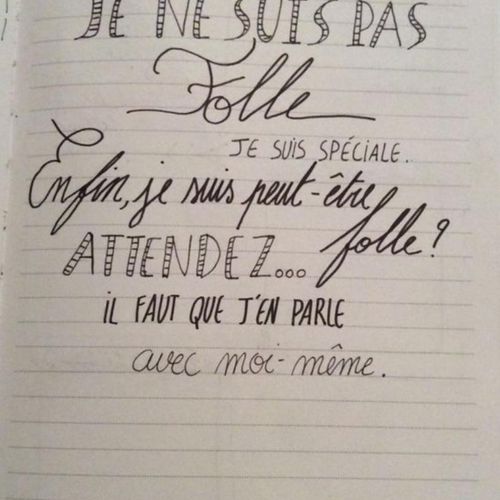 JE NE SUIS PAS
Folle
JE SUIS SPÉCIALE.
Enfin, je suis peut-être
folle?
ATTENDEZ...
iL FAUT QUE J'EN PARLE
avec moi-même.